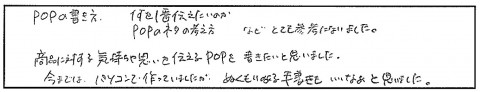 POPの書き方、何を1番伝えたいのか
POPのネタの考え方 などとても参考になりました。
商品に対する気持ちや思いを伝えるPOPを書きたいと思いました。
今までは、パソコンで作っていましたが ぬくもりある手書きも いいなあと思いました。